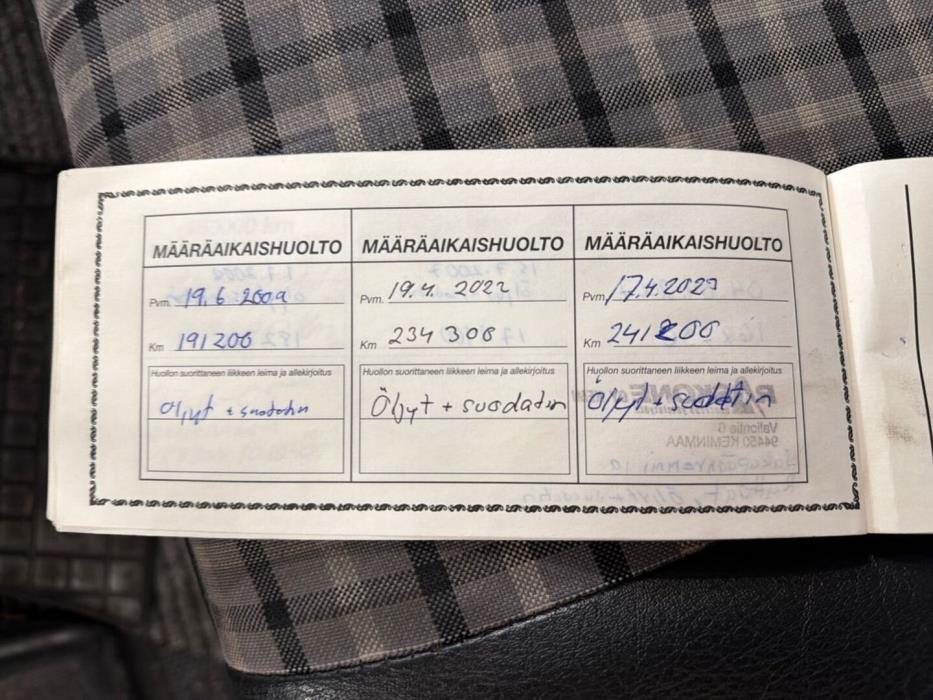 MÄÄRÄAIKAISHUOLTO
Pvm. 19.6 2009
Km 191200
Huollon suorittaneen liikkeen leima ja allekirjoitus
Öljyt + suodatin
MÄÄRÄAIKAISHUOLTO
Pvm. 19.4. 2022
Km 234 300
Huollon suorittaneen liikkeen leima ja allekirjoitus
Öljyt + suodatin
MÄÄRÄAIKAISHUOLTO
Pvm. 17.4.2023
Km 241200
Huollon suorittaneen liikkeen leima ja allekirjoitus
Öljyt + suodatin